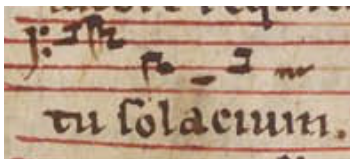 tu solacium.